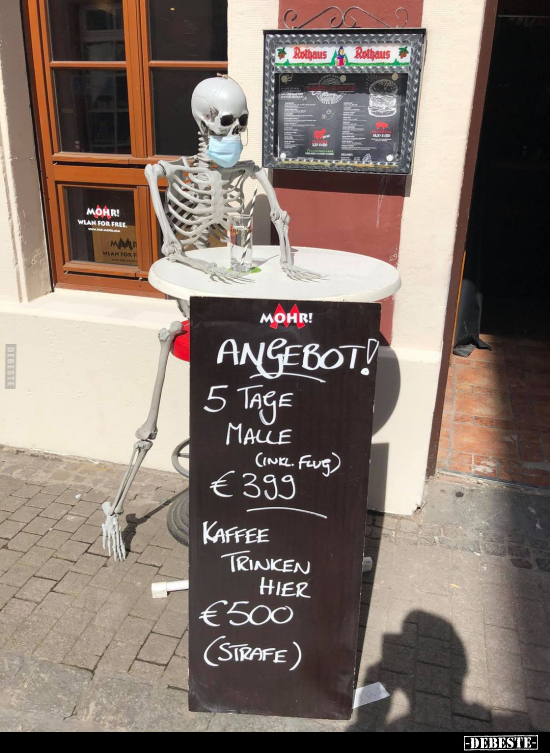 Rothaus Rothaus
MOHR!
WLAN FOR FREE
MOHR!
ANGEBOT!
5 TAGE
MALLE
(INKL. FLUG)
€ 399
KAFFEE
TRINKEN
HIER
€500
(STRAFE)
DEBESTE
-DEBESTE-